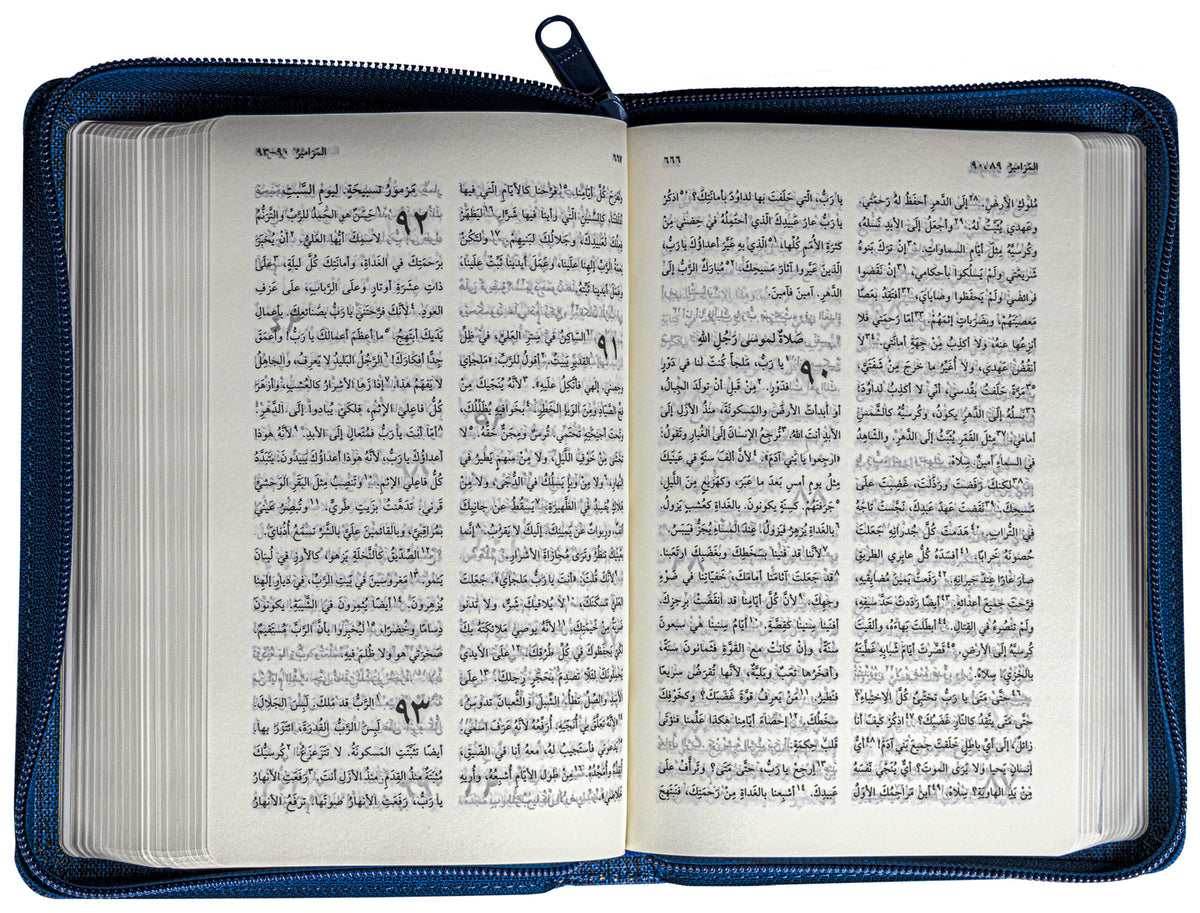 المَزامِيرُ ٨٩، ٩٠
مُلوكِ الأرضِ. ٢٨إلَى الدَّهرِ أحفَظُ لهُ رَحمَتي.
وعَهدي يُثَبَّتُ لهُ. ٢٩وأجعَلُ إلَى الأبدِ نَسلَهُ،
وكُرسيَّهُ مِثلَ أيّامِ السماواتِ. ٣٠إنْ ترَكَ بَنوهُ
شَريعَتي ولَمْ يَسلُكوا بأحكامي، ٣١إنْ نَقَضوا
فرائضي ولَمْ يَحفَظوا وصايايَ، ٣٢أفتَقِدُ بعَصًا
مَعصيَتَهُمْ، وبضَرَباتٍ إثمَهُمْ. ٣٣أمّا رَحمَتي فلا
أنزِعُها عنهُ، ولا أكذِبُ مِنْ جِهَةِ أمانَتي. ٣٤لا
أنقُضُ عَهدي، ولا أُغَيِّرُ ما خرجَ مِنْ شَفَتَيَّ.
٣٥مَرَّةً حَلَفتُ بقُدسي، أنّي لا أكذِبُ لداوُدَ:
٣٦نَسلُهُ إلَى الدَّهرِ يكونُ، وكُرسيُّهُ كالشَّمسِ
أمامي. ٣٧مِثلَ القَمَرِ يُثَبَّتُ إلَى الدَّهرِ. والشّاهِدُ
في السماءِ أمينٌ. سِلاهْ.
٣٨لكنكَ رَفَضتَ ورَذَلتَ، غَضِبتَ علَى
مَسيحِكَ. ٣٩نَقَضتَ عَهدَ عَبدِكَ، نَجَّستَ تاجَهُ
في التُّرابِ. ٤٠هَدَمتَ كُلَّ جُدرانِهِ. جَعَلتَ
حُصونَهُ خَرابًا. ٤١أفسَدَهُ كُلُّ عابِري الطريقِ.
صارَ عارًا عِندَ جيرانِهِ. ٤٢رَفَعتَ يَمينَ مُضايِقيهِ،
فرَّحتَ جميعَ أعدائهِ. ٤٣أيضًا رَدَدتَ حَدَّ سيفِهِ،
ولَمْ تنصُرهُ في القِتالِ. ٤٤أبطَلتَ بَهاءَهُ، وألقَيتَ
كُرسيَّهُ إلَى الأرضِ. ٤٥قَصَّرتَ أيّامَ شَبابِهِ. غَطَّيتَهُ
بالخِزيِ. سِلاهْ.
٤٦حتَّى مَتَى يا رَبُّ تختَبِئُ كُلَّ الِاختِباءِ؟
حتَّى مَتَى يتَّقِدُ كالنّارِ غَضَبُكَ؟ ٤٧اذكُرْ كيفَ أنا
زائلٌ، إلَى أيِّ باطِلٍ خَلَقتَ جميعَ بَني آدَمَ! ٤٨أيُّ
إنسانٍ يَحيا ولا يَرَى الموتَ؟ أيٌّ يُنَجّي نَفسَهُ
مِنْ يَدِ الهاويَةِ؟ سِلاهْ. ٤٩أين مَراحِمُكَ الأوَلُ
٦٦٦
يا رَبُّ، الّتي حَلَفتَ بها لداوُدَ بأمانَتِكَ؟ ٥٠اذكُرْ
يا رَبُّ عارَ عَبيدِكَ الّذي أحتَمِلُهُ في حِضني مِنْ
كثرَةِ الأُمَمِ كُلِّها، ٥١الّذي بهِ عَيَّرَ أعداؤُكَ يا رَبُّ،
الّذينَ عَيَّروا آثارَ مَسيحِكَ. ٥٢مُبارَكٌ الرَّبُّ إلَى
الدَّهرِ. آمينَ فآمينَ.
صَلاةٌ لموسَى رَجُلِ اللهِ
٩٠
١يا رَبُّ، مَلجأً كُنتَ لنا في دَورٍ
فدَورٍ. ٢مِنْ قَبلِ أنْ تولَدَ الجِبالُ،
أو أبدأتَ الأرضَ والمَسكونَةَ، منذُ الأزَلِ إلَى
الأبدِ أنتَ اللهُ. ٣تُرجِعُ الإنسانَ إلَى الغُبارِ وتَقولُ:
«ارجِعوا يا بَني آدَمَ». ٤لأنَّ ألفَ سنَةٍ في عَينَيكَ
مِثلُ يومِ أمسِ بَعدَ ما عَبَرَ، وكهَزيعٍ مِنَ اللَّيلِ.
٥جَرَفتَهُمْ. كسِنَةٍ يكونونَ. بالغَداةِ كعُشبٍ يَزولُ.
٦بالغَداةِ يُزهِرُ فيَزولُ. عِندَ المساءِ يُجَزُّ فيَيبَسُ.
٧لأنَّنا قد فنينا بسَخَطِكَ وبغَضَبِكَ ارتَعَبنا.
٨قد جَعَلتَ آثامَنا أمامَكَ، خَفيّاتِنا في ضَوءِ
وجهِكَ. ٩لأنَّ كُلَّ أيّامِنا قد انقَضَتْ برِجزِكَ.
أفنَينا سِنينا كقِصَّةٍ. ١٠أيّامُ سِنينا هي سبعونَ
سنَةً، وإنْ كانتْ مع القوَّةِ فثَمانونَ سنَةً،
وأفخَرُها تعَبٌ وبَليَّةٌ، لأنَّها تُقرَضُ سريعًا
فنَطيرُ. ١١مَنْ يَعرِفُ قوَّةَ غَضَبِكَ؟ وكخَوفِكَ
سخَطُكَ. ١٢إحصاءَ أيّامِنا هكذا عَلِّمنا فنؤتَى
قَلبَ حِكمَةٍ.
١٣اِرجِعْ يا رَبُّ، حتَّى مَتَى؟ وتَرأّفْ علَى
عَبيدِكَ. ١٤أشبِعنا بالغَداةِ مِنْ رَحمَتِكَ، فنَبتَهِجَ
٦٦٧
ونَفرَحَ كُلَّ أيّامِنا. ١٥فرِّحنا كالأيّامِ الّتي فيها
كالسِّنينِ الّتي رأينا فيها شَرًّا. ١٦ليَظهَرْ
لعَبيدِكَ، وجَلالُكَ لبَنيهِمْ. ١٧ولتَكُنْ
الرَّبِّ إلهِنا علَينا، وعَمَلَ أيدينا ثَبِّتْ علَينا،
وعَمَلَ أيدينا ثَبِّتهُ.
٩١
١السّاكِنُ في سِترِ العَليِّ، في ظِلِّ
القديرِ يَبيتُ. ٢أقولُ للرَّبِّ: «مَلجإي
وحِصني. إلهي فأتَّكِلُ علَيهِ». ٣لأنَّهُ يُنَجّيكَ مِنْ
فخِّ الصَّيّادِ ومِنَ الوَبإِ الخَطِرِ. ٤بخَوافيهِ يُظَلِّلُكَ،
وتَحتَ أجنِحَتِهِ تحتَمي. تُرسٌ ومِجَنٌّ حَقُّهُ. ٥لا
تخشَى مِنْ خَوفِ اللَّيلِ، ولا مِنْ سهمٍ يَطيرُ في
النَّهارِ، ٦ولا مِنْ وبإٍ يَسلُكُ في الدُّجَى، ولا مِنْ
هَلاكٍ يُفسِدُ في الظَّهيرَةِ. ٧يَسقُطُ عن جانِبِكَ
ألفٌ، ورِبواتٌ عن يَمينِكَ. إلَيكَ لا يَقرُبُ. ٨إنَّما
بعَينَيكَ تنظُرُ وتَرَى مُجازاةَ الأشرارِ.
٩لأنَّكَ قُلتَ: «أنتَ يا رَبُّ مَلجإي». جَعَلتَ
العَليَّ مَسكَنَكَ، ١٠لا يُلاقيكَ شَرٌّ، ولا تدنو
ضَربَةٌ مِنْ خَيمَتِكَ. ١١لأنَّهُ يوصي مَلائكَتَهُ بكَ
لكَيْ يَحفَظوكَ في كُلِّ طُرُقِكَ. ١٢علَى الأيدي
يَحمِلونَكَ لئَلّا تصدِمَ بحَجَرٍ رِجلَكَ. ١٣علَى
الأسَدِ والصِّلِّ تطأُ. الشِّبلَ والثُّعبانَ تدوسُ.
١٤لأنَّهُ تعَلَّقَ بي أُنَجّيهِ. أُرَفِّعُهُ لأنَّهُ عَرَفَ اسمي.
١٥يَدعوني فأستَجيبُ لهُ، معهُ أنا في الضّيقِ،
أُنقِذُهُ وأُمَجِّدُهُ. ١٦مِنْ طول الأيّامِ أُشبِعُهُ، وأُريهِ
خَلاصي».
المَزامِيرُ ٩٠-٩٣
مَزمورُ تسبيحَةٍ. ليومِ السَّبتِ
٩٢
١حَسَنٌ هو الحَمدُ للرَّبِّ والتَّرَنُّمُ
لاسمِكَ أيُّها العَليُّ. ٢أنْ يُخبَرَ
برَحمَتِكَ في الغَداةِ، وأمانَتِكَ كُلَّ ليلَةٍ، ٣علَى
ذاتِ عشَرَةِ أوتارٍ وعلَى الرَّبابِ، علَى عَزفِ
العودِ. ٤لأنَّكَ فرَّحتَني يا رَبُّ بصَنائعِكَ. بأعمالِ
يَدَيكَ أبتَهِجُ. ٥ما أعظَمَ أعمالكَ يا رَبُّ! وأعمَقَ
جِدًّا أفكارَكَ! ٦الرَّجُلُ البَليدُ لا يَعرِفُ، والجاهِلُ
لا يَفهَمُ هذا. ٧إذا زَها الأشرارُ كالعُشبِ، وأزهَرَ
كُلُّ فاعِلي الإثمِ، فلِكَيْ يُبادوا إلَى الدَّهرِ.
٨أمّا أنتَ يا رَبُّ، فمُتَعالٍ إلَى الأبدِ. ٩لأنَّهُ هوذا
أعداؤُكَ يا رَبُّ، لأنَّهُ هوذا أعداؤُكَ يَبيدونَ. يتَبَدَّدُ
كُلُّ فاعِلي الإثمِ. ١٠وتَنصِبُ مِثلَ البَقَرِ الوَحشيِّ
قَرني. تدَهَّنتُ بزَيتٍ طَريٍّ. ١١وتُبصِرُ عَيني
بمُراقِبيَّ، وبالقائمينَ علَيَّ بالشَّرِّ تسمَعُ أُذُنايَ.
١٢الصِّدّيقُ كالنَّخلَةِ يَزهو، كالأرزِ في لُبنانَ
يَنمو. ١٣مَغروسينَ في بَيتِ الرَّبِّ، في ديارِ إلهِنا
يُزهِرونَ. ١٤أيضًا يُثمِرونَ في الشَّيبَةِ. يكونونَ
دِسامًا وخُضرًا، ١٥ليُخبِروا بأنَّ الرَّبَّ مُستَقيمٌ.
صَخرَتي هو ولا ظُلمَ فيهِ.
٩٣
١الرَّبُّ قد مَلكَ. لَبِسَ الجَلالَ.
لَبِسَ الرَّبُّ القُدرَةَ، ائتَزَرَ بها.
أيضًا تثَبَّتَتِ المَسكونَةُ. لا تتَزَعزَعُ. ٢كُرسيُّكَ
مُثبَتَةٌ منذُ القِدَمِ. منذُ الأزَلِ أنتَ. ٣رَفَعَتِ الأنهارُ
يا رَبُّ، رَفَعَتِ الأنهارُ صوتَها. ترفَعُ الأنهارُ